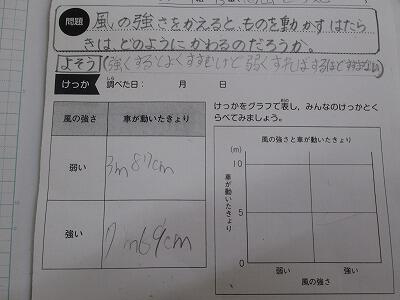 問題 風の強さをかえると、ものを動かすはたら
きは、どのようにかわるのだろうか。
よそう(強くするとよくすすむけど弱くすればするほどすすまない)
けっか 調べた日: 月 日
風の強さ 車が動いたきょり
弱い 3m87cm
強い 7m69cm
けっかをグラフで表し、みんなのけっかとく
らべてみましょう。
風の強さと車が動いたきょり
(m)
10
車が動いたきょり
5
0
弱い 強い
風の強さ